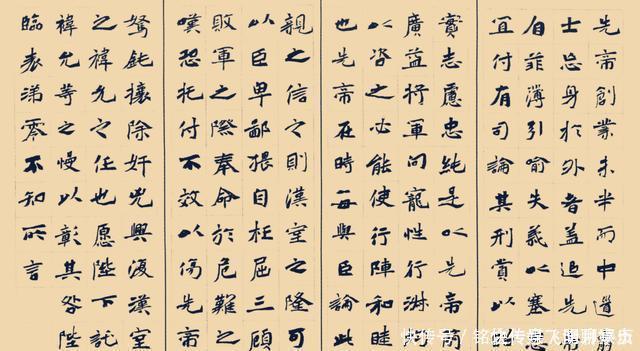 先帝創業未半而中道
士忘身於外者蓋追先
自菲薄引喻失義以塞
宜付有司論其刑賞以
實志慮忠純是以先帝
廣益將軍向寵性行淑
以咨之必能使行陣和睦
也先帝在時每與臣論此
親之信之則漢室之隆可
以臣卑鄙猥自枉屈三顧
敗軍之際奉命於危難之
嘆恐托付不效以傷先帝
駑鈍攘除奸兇興復漢室
之禕允之任也愿陛下託
禕允等之慢以彰其咎陛
臨表涕零不知所言
快传号／